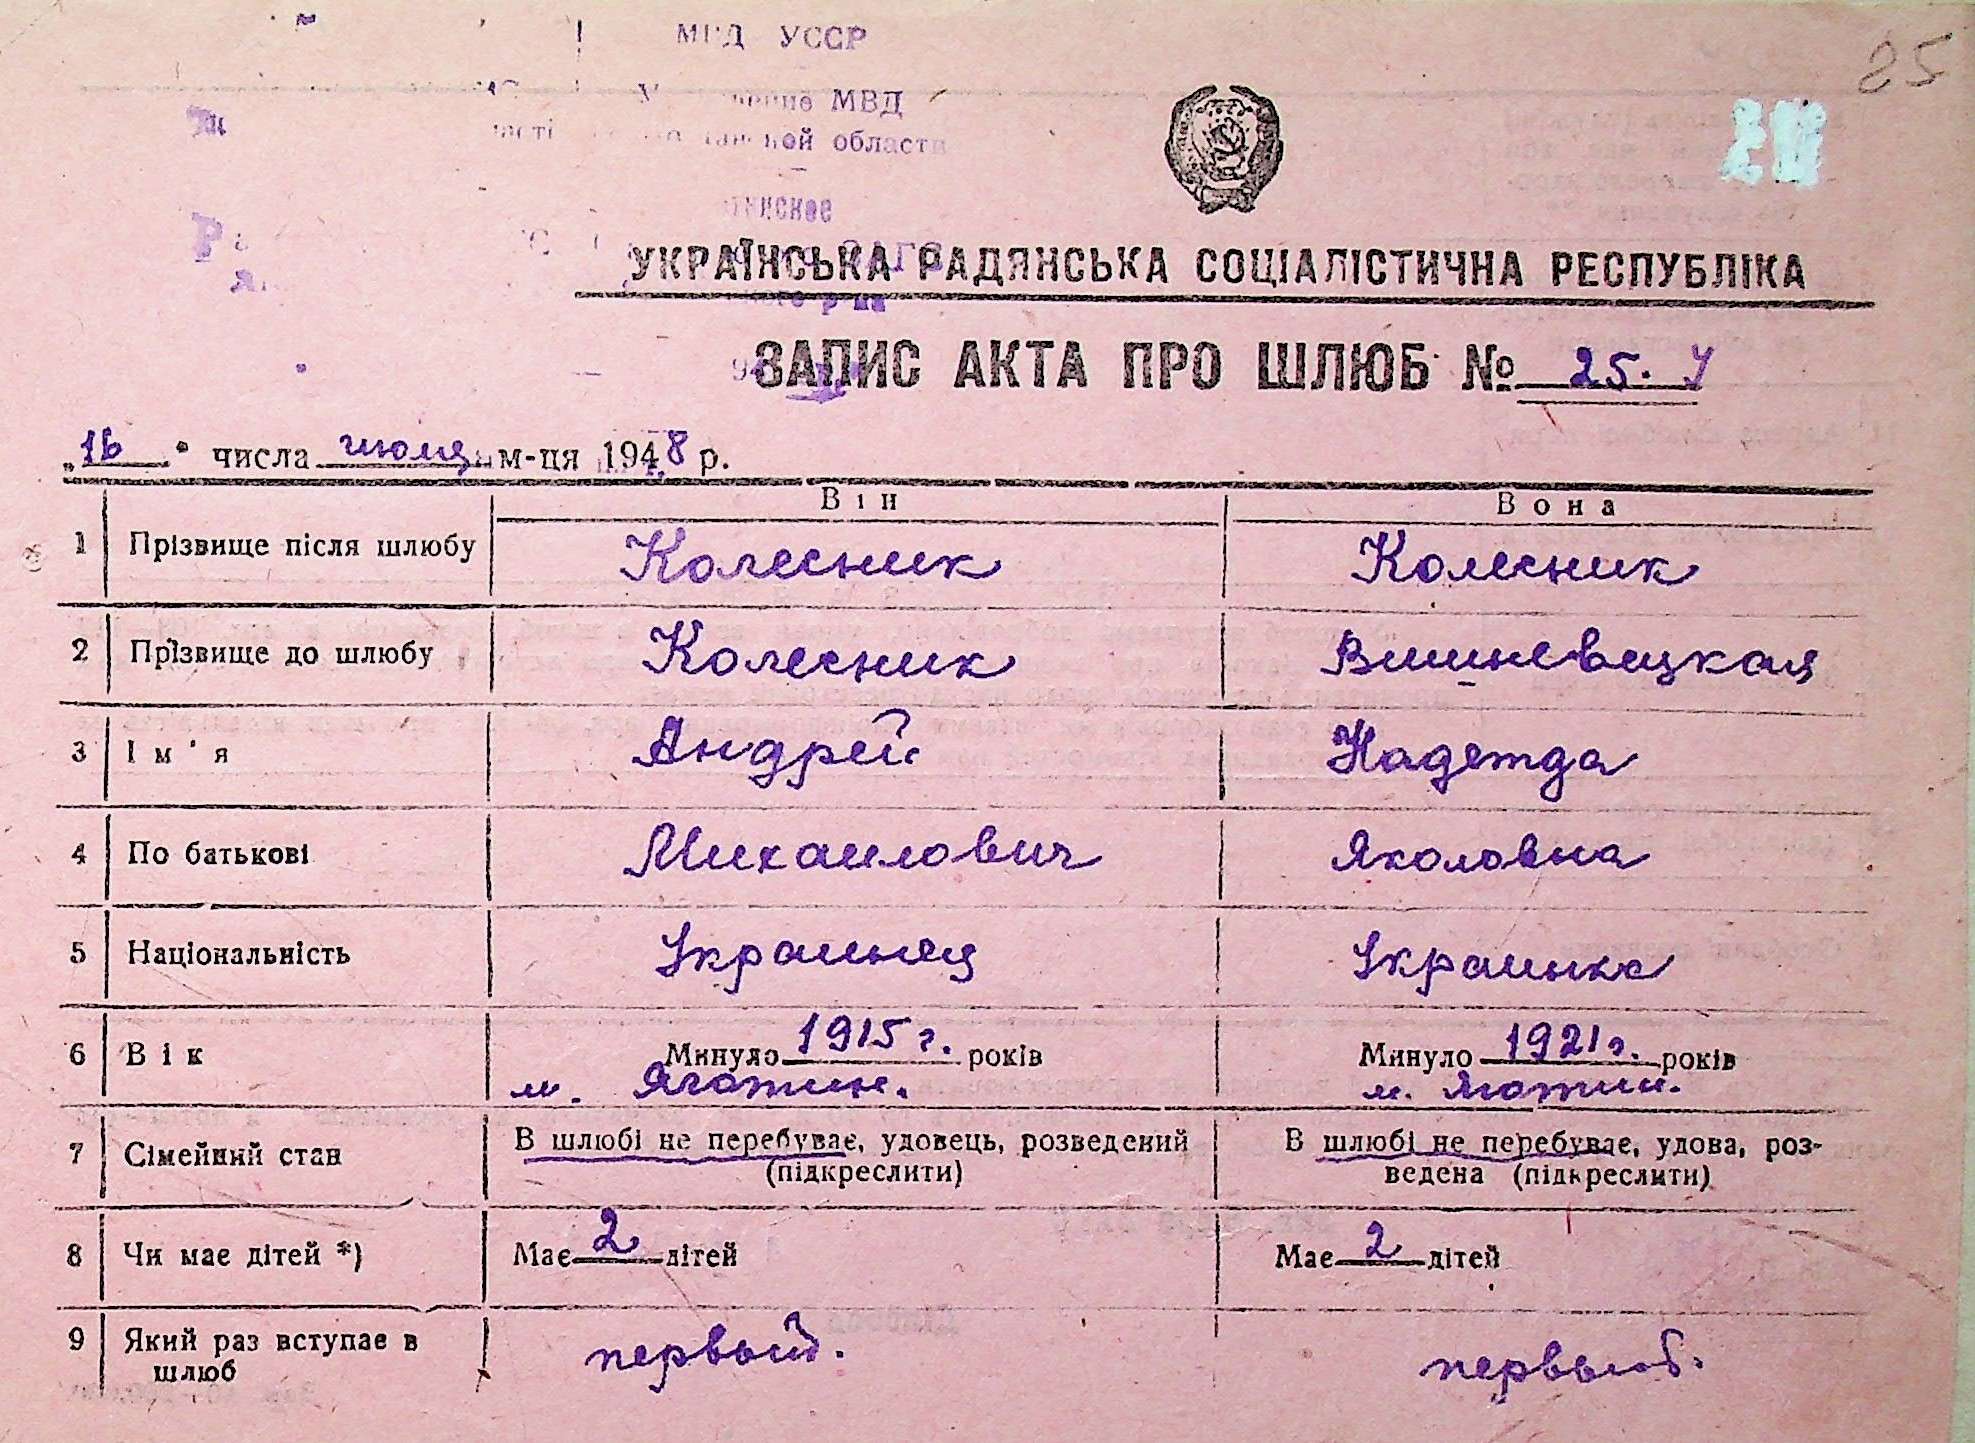 25
УССР
МВД
области
УКРАЇНСЬКА РАДЯНСЬКА СОЦІАЛІСТИЧНА РЕСПУБЛІКА
ЗАПИС АКТА ПРО ШЛЮБ № 25.
„16" числа июля м-ця 1948 р.
Він Вона
1 Прізвище після шлюбу Колесник Колесник
2 Прізвище до шлюбу Колесник Вишневецкая
3 Ім'я Андрей Надежда
4 По батькові Михаилович Яколовна
5 Національність Украинец Украинка
6 Вік Минуло 1915 г. років Минуло 1921 г. років
м. Яготин. м. Яготин.
7 Сімейний стан В шлюбі не перебуває, удовець, розведений В шлюбі не перебуває, удова, роз-
(підкреслити) ведена (підкреслити)
8 Чи має дітей *) Має 2 дітей Має 2 дітей
9 Який раз вступає в
шлюб первый. первый.